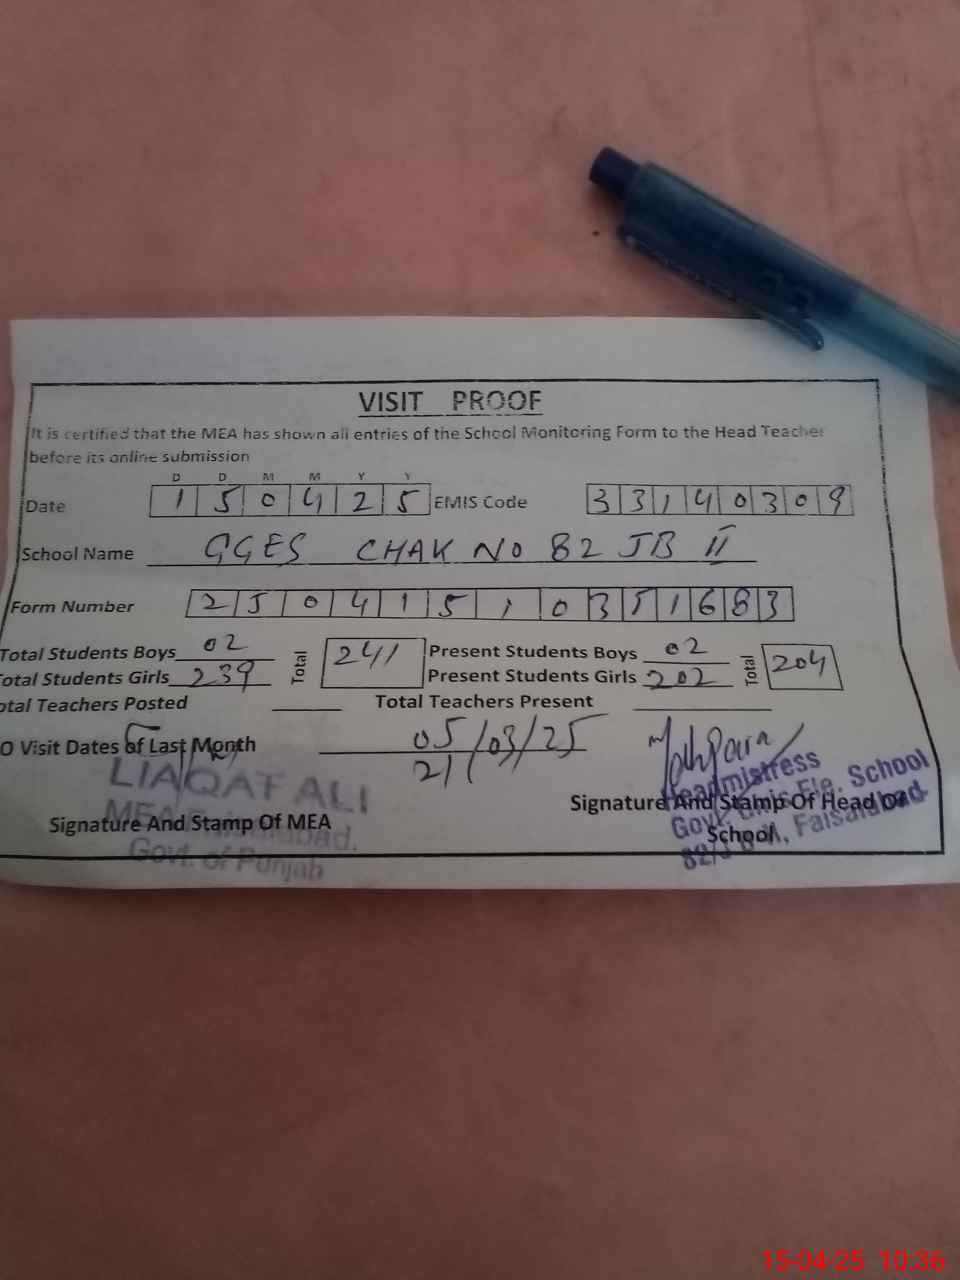 VISIT PROOF
It is certified that the MEA has shown all entries of the School Monitoring Form to the Head Teacher
before its online submission
D D M M Y Y
Date 1 5 0 4 2 5 EMIS Code 3 3 1 4 0 3 0 9
School Name GGES CHAK NO 82 JB II
Form Number 2 5 0 4 1 5 1 0 3 5 1 6 8 3
Total Students Boys 02 Total 241 Present Students Boys 02 Total 204
otal Students Girls 239 Present Students Girls 202
otal Teachers Posted Total Teachers Present
O Visit Dates of Last Month 05/03/25
21/
LIAQAT ALI
MEA Faisalabad.
Govt. of Punjab
Signature And Stamp Of MEA
Headmistress
Govt. Girls Ele. School
Faisalabad
Signature And Stamp Of Head Of
School
15-04-25 10:36